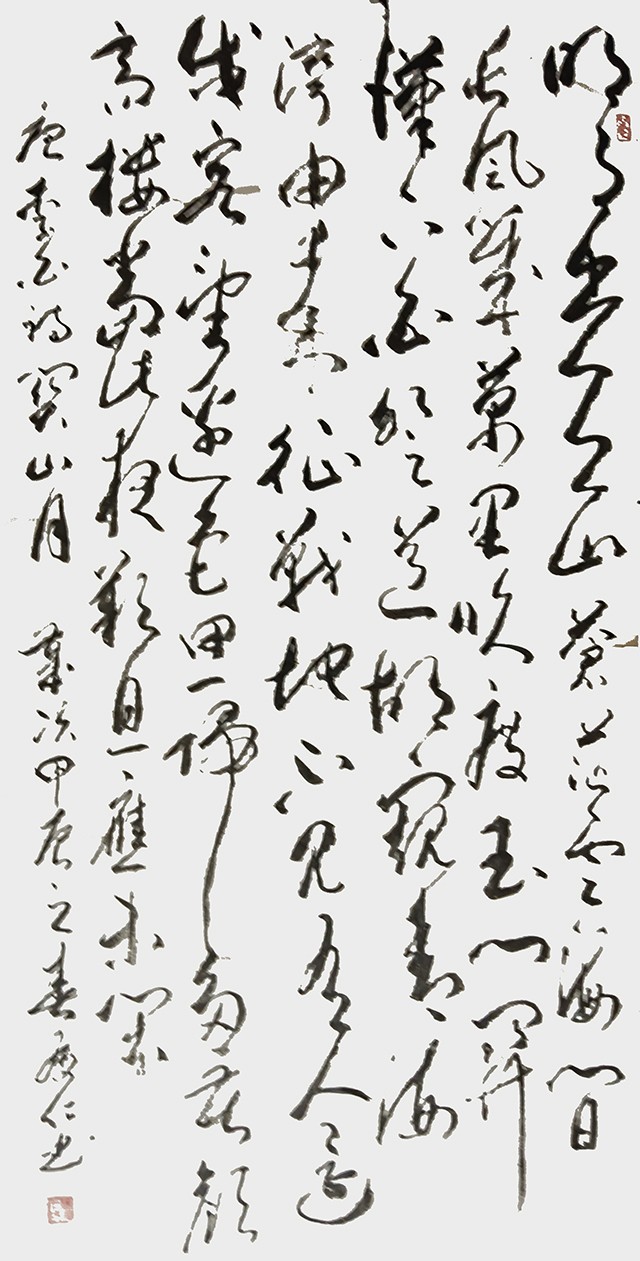 明月出天山蒼茫雲海間
長風幾萬里吹度玉門關
漢下白登道胡窺青海
灣由來征戰地不見有人還
戍客望邊色思歸多苦顏
高樓當此夜歎息應未閑
唐李白詩關山月 歲次甲庚之春仁書